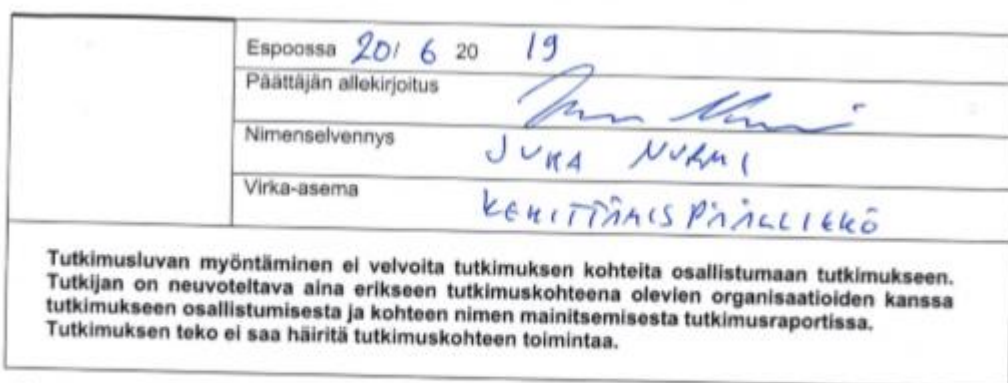 Espoossa 20/ 6 20 19
Päättäjän allekirjoitus
Nimenselvennys JUHA NURMI
Virka-asema KEHITTÄMISPÄÄLLIKKÖ
Tutkimusluvan myöntäminen ei velvoita tutkimuksen kohteita osallistumaan tutkimukseen.
Tutkijan on neuvoteltava aina erikseen tutkimuskohteena olevien organisaatioiden kanssa
tutkimukseen osallistumisesta ja kohteen nimen mainitsemisesta tutkimusraportissa.
Tutkimuksen teko ei saa häiritä tutkimuskohteen toimintaa.